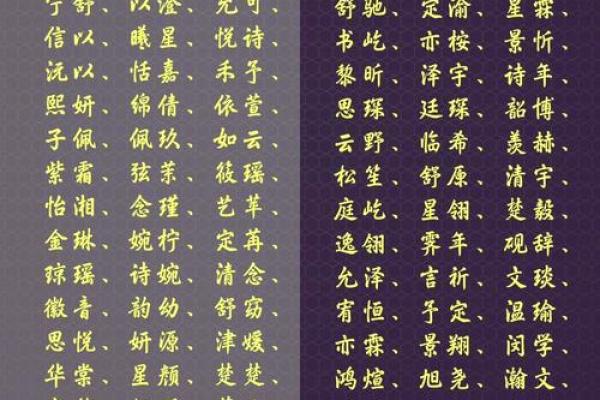 宁舒、以澄、允可、
信以、曦星、悦诗、
沅以、恬嘉、禾予、
熙妍、绵倩、依萱、
子佩、佩玖、如云、
紫霜、弦茉、筱瑶、
怡湘、念瑾、艺苹、
金琳、婉柠、定苒、
琼瑶、诗婉、清念、
徽音、韵幼、舒窈、
思悦、妍源、津媛、
华棠、星颜、楚楚、
舒驰、定渝、星霖、
书屹、亦桉、景忻、
黎昕、泽宇、诗年、
思琛、廷琛、韶博、
云野、临希、羡赫、
松笙、舒原、清宇、
庭屹、星翎、楚毅、
逸翎、霁年、砚辞、
允泽、吉祈、文琰、
宥恒、予定、温瑜、
亦霖、景翔、闵学、
鸿煊、旭尧、瀚文、